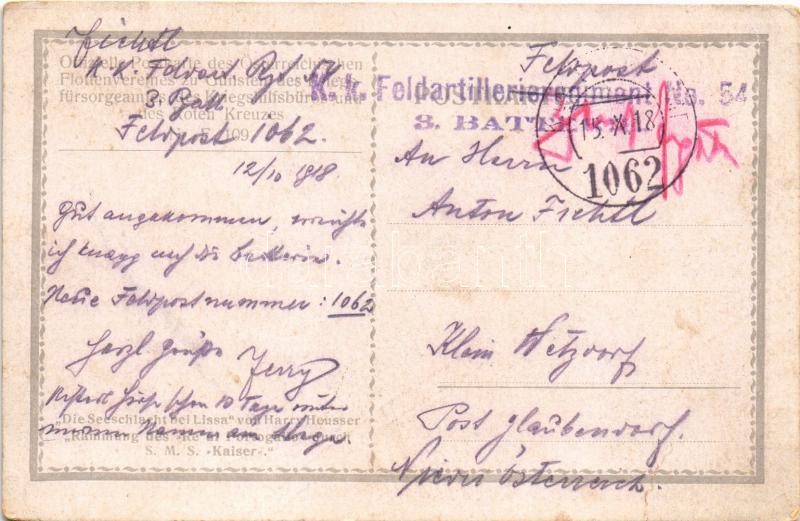 Fichtl
3. Batt
Feldpost 1062.
12/10 1918.
Offizielle Postkarte des Österreichischen
Flottenvereines zu Gunsten des
fürsorgeamtes des Kriegshilfsbüros und
des Roten Kreuzes
Gut angekommen, erreichte
ich knapp auf die Batterie.
Neue Feldpostnummer: 1062
Herzl Grüße Jerry
schon 10 Tage unter
"Die Seeschlacht bei Lissa" von Harry Heusser
"Rammung des «Re di Portogallo» durch
S. M. S. «Kaiser»."
Feldpost
K. k. Feldartillerieregiment No. 54
3. BATT
15. X. 18
1062
An Herrn
Anton Fichtl
Klein Wetzdorf
Post Glaubendorf.
Nieder Österreich.
darabanth